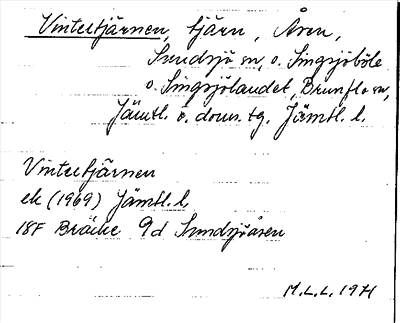 Vintertjärnen, tjärn, Åsen,
Sundsjö sn, o. Singsjöböle
o. Singsjölandet, Brunflo sn,
Jämtl. ö. doms. tg. Jämtl. l.
Vintertjärnen
ek (1969) Jämtl. l.
18F Bräcke 9d Sundsjöåsen
M.L.L. 1971